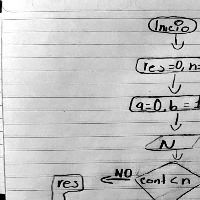 Inicio
res=0, n=
a=0, b=1
N
NO cont<n
res